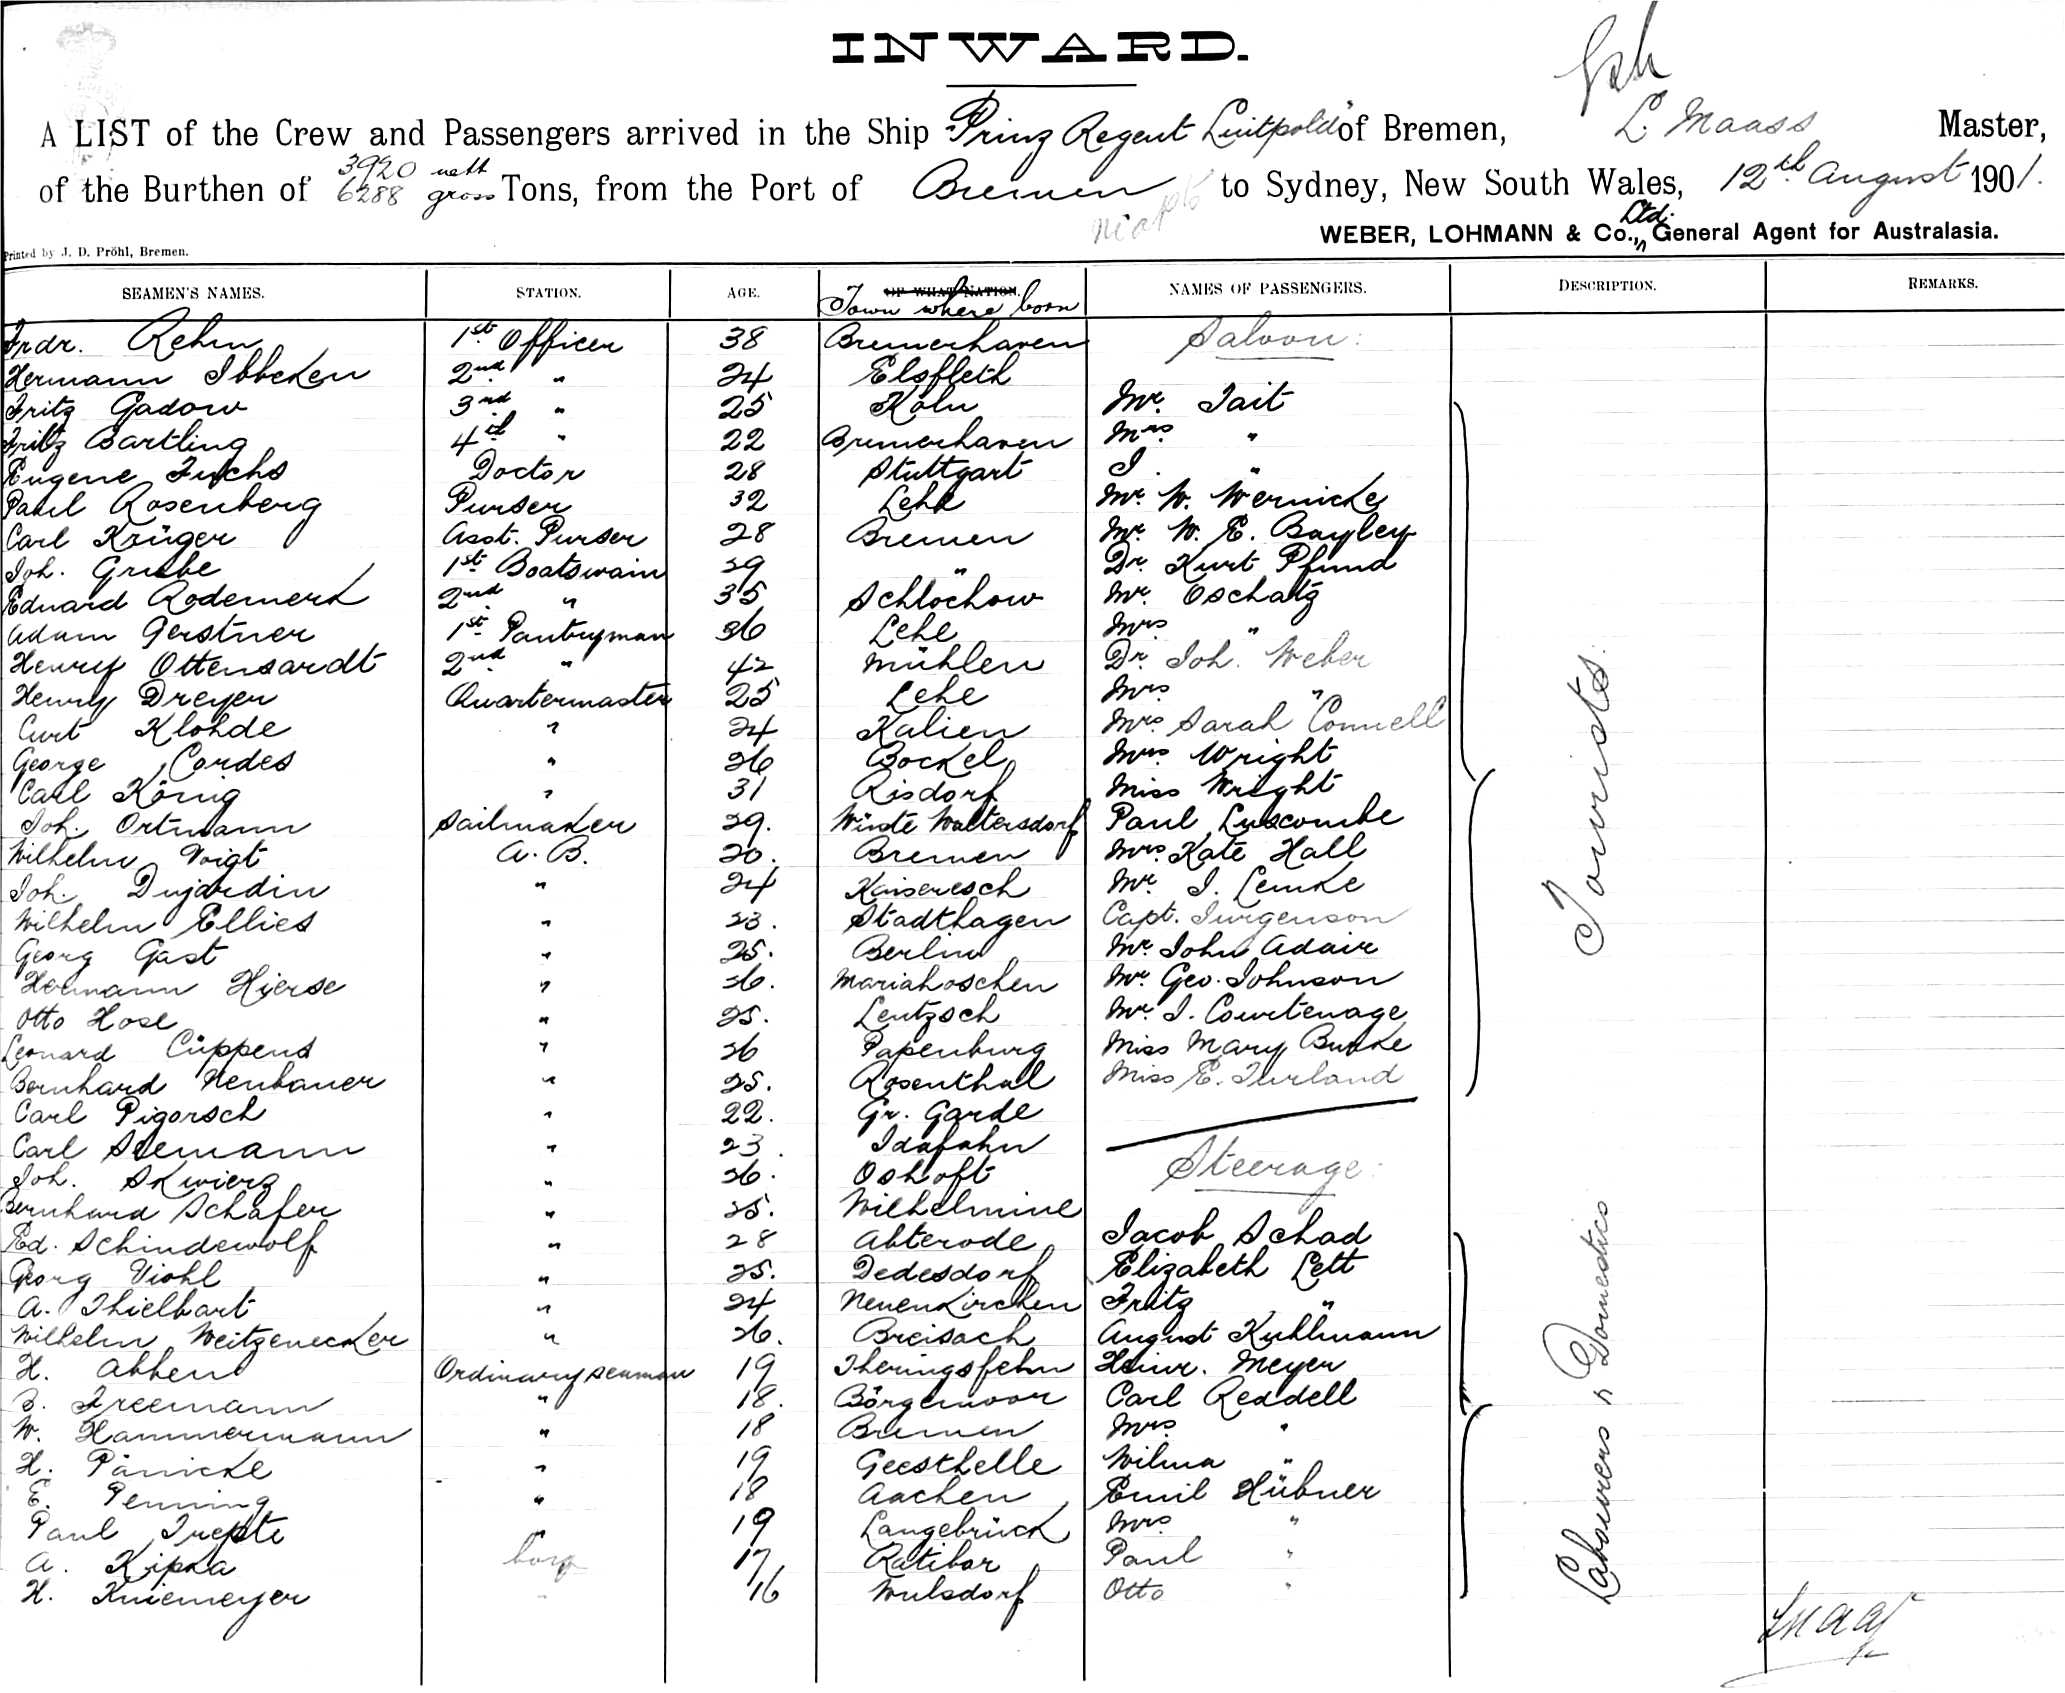 INWARD.
A LIST of the Crew and Passengers arrived in the Ship "Prinz Regent Luitpold" of Bremen, L. Maass Master,
3920 nett
of the Burthen of 6288 gross Tons, from the Port of Bremen to Sydney, New South Wales, 12th August 1901.
Ltd.
WEBER, LOHMANN & Co., General Agent for Australasia.
Printed by J. D. Pröhl, Bremen.
SEAMEN'S NAMES. STATION. AGE. OF WHAT NATION. NAMES OF PASSENGERS. DESCRIPTION. REMARKS.
Town where born
Frdr. Rehm 1st Officer 38 Bremerhaven Saloon:
Hermann Ibbeken 2nd " 24 Elsfleth
Fritz Gadow 3rd " 25 Köln Mr. Tait
Fritz Bartling 4th " 22 Bremerhaven Mrs "
Eugene Fuchs Doctor 28 Stuttgart I. "
Paul Rosenberg Purser 32 Lehe Mr. W. Wernicke
Carl Krüger Asst. Purser 28 Bremen Mr. W. E. Bayley
Joh. Grube 1st Boatswain 29 " Dr. Kurt Pfund
Eduard Rodemerk 2nd " 35 Schlochow Mr. Oschatz
Adam Gerstner 1st Pantryman 36 Lehe Mrs "
Henry Ottensardt 2nd " 42 Mühlen Dr. Joh. Weber
Henry Dreyer Quartermaster 25 Lehe Mrs "
Curt Klohde " 24 Kalien Mrs. Sarah Connell
George Cordes " 26 Bockel Mrs Wright
Carl König " 31 Risdorf Miss Wright
Joh. Ortmann Sailmaker 29. Wüste Waltersdorf Paul Luscombe
Wilhelm Voigt A. B. 20. Bremen Mrs. Kate Hall
Joh. Dujardin " 24 Kaiseresch Mr. I. Lemke
Wilhelm Ellies " 23. Stadthagen Capt. Jurgenson
Georg Gast " 25. Berlin Mr. John Adair
Hermann Hierse " 26. Mariahoschen Mr. Geo. Johnson
Otto Hose " 25. Leutzsch Mr. J. Courtenage
Leonard Cüppens " 26 Papenburg Miss Mary Burke
Bernhard Neubauer " 25. Rosenthal Miss E. Turland
Carl Pigorsch " 22. Gr. Garde
Carl Seemann " 23. Idafahn
Joh. Skwierz " 26. Oshoft Steerage:
Bernhard Schäfer " 25. Wilhelmine
Ed. Schindewolf " 28 Abterode Jacob Schad
Georg Viohl " 25. Dedesdorf Elizabeth Lett
A. Thielbart " 24 Neuenkirchen Fritz "
Wilhelm Weitzenecker " 26. Breisach August Kuhlmann
H. Abben Ordinary seaman 19 Iheringsfehn Heinr. Meyer
B. Freemann " 18. Börgermoor Carl Reddell
W. Hammermann " 18 Bremen Mrs "
H. Pänicke " 19 Geesthelle Wilma "
E. Penning " 18 Aachen Emil Hübner
Paul Trepte " 19 Langebrück Mrs "
A. Kipka boy 17 Ratibor Paul "
H. Kniemeyer " 16 Wulsdorf Otto "
Tourists.
Labourers & Domestics